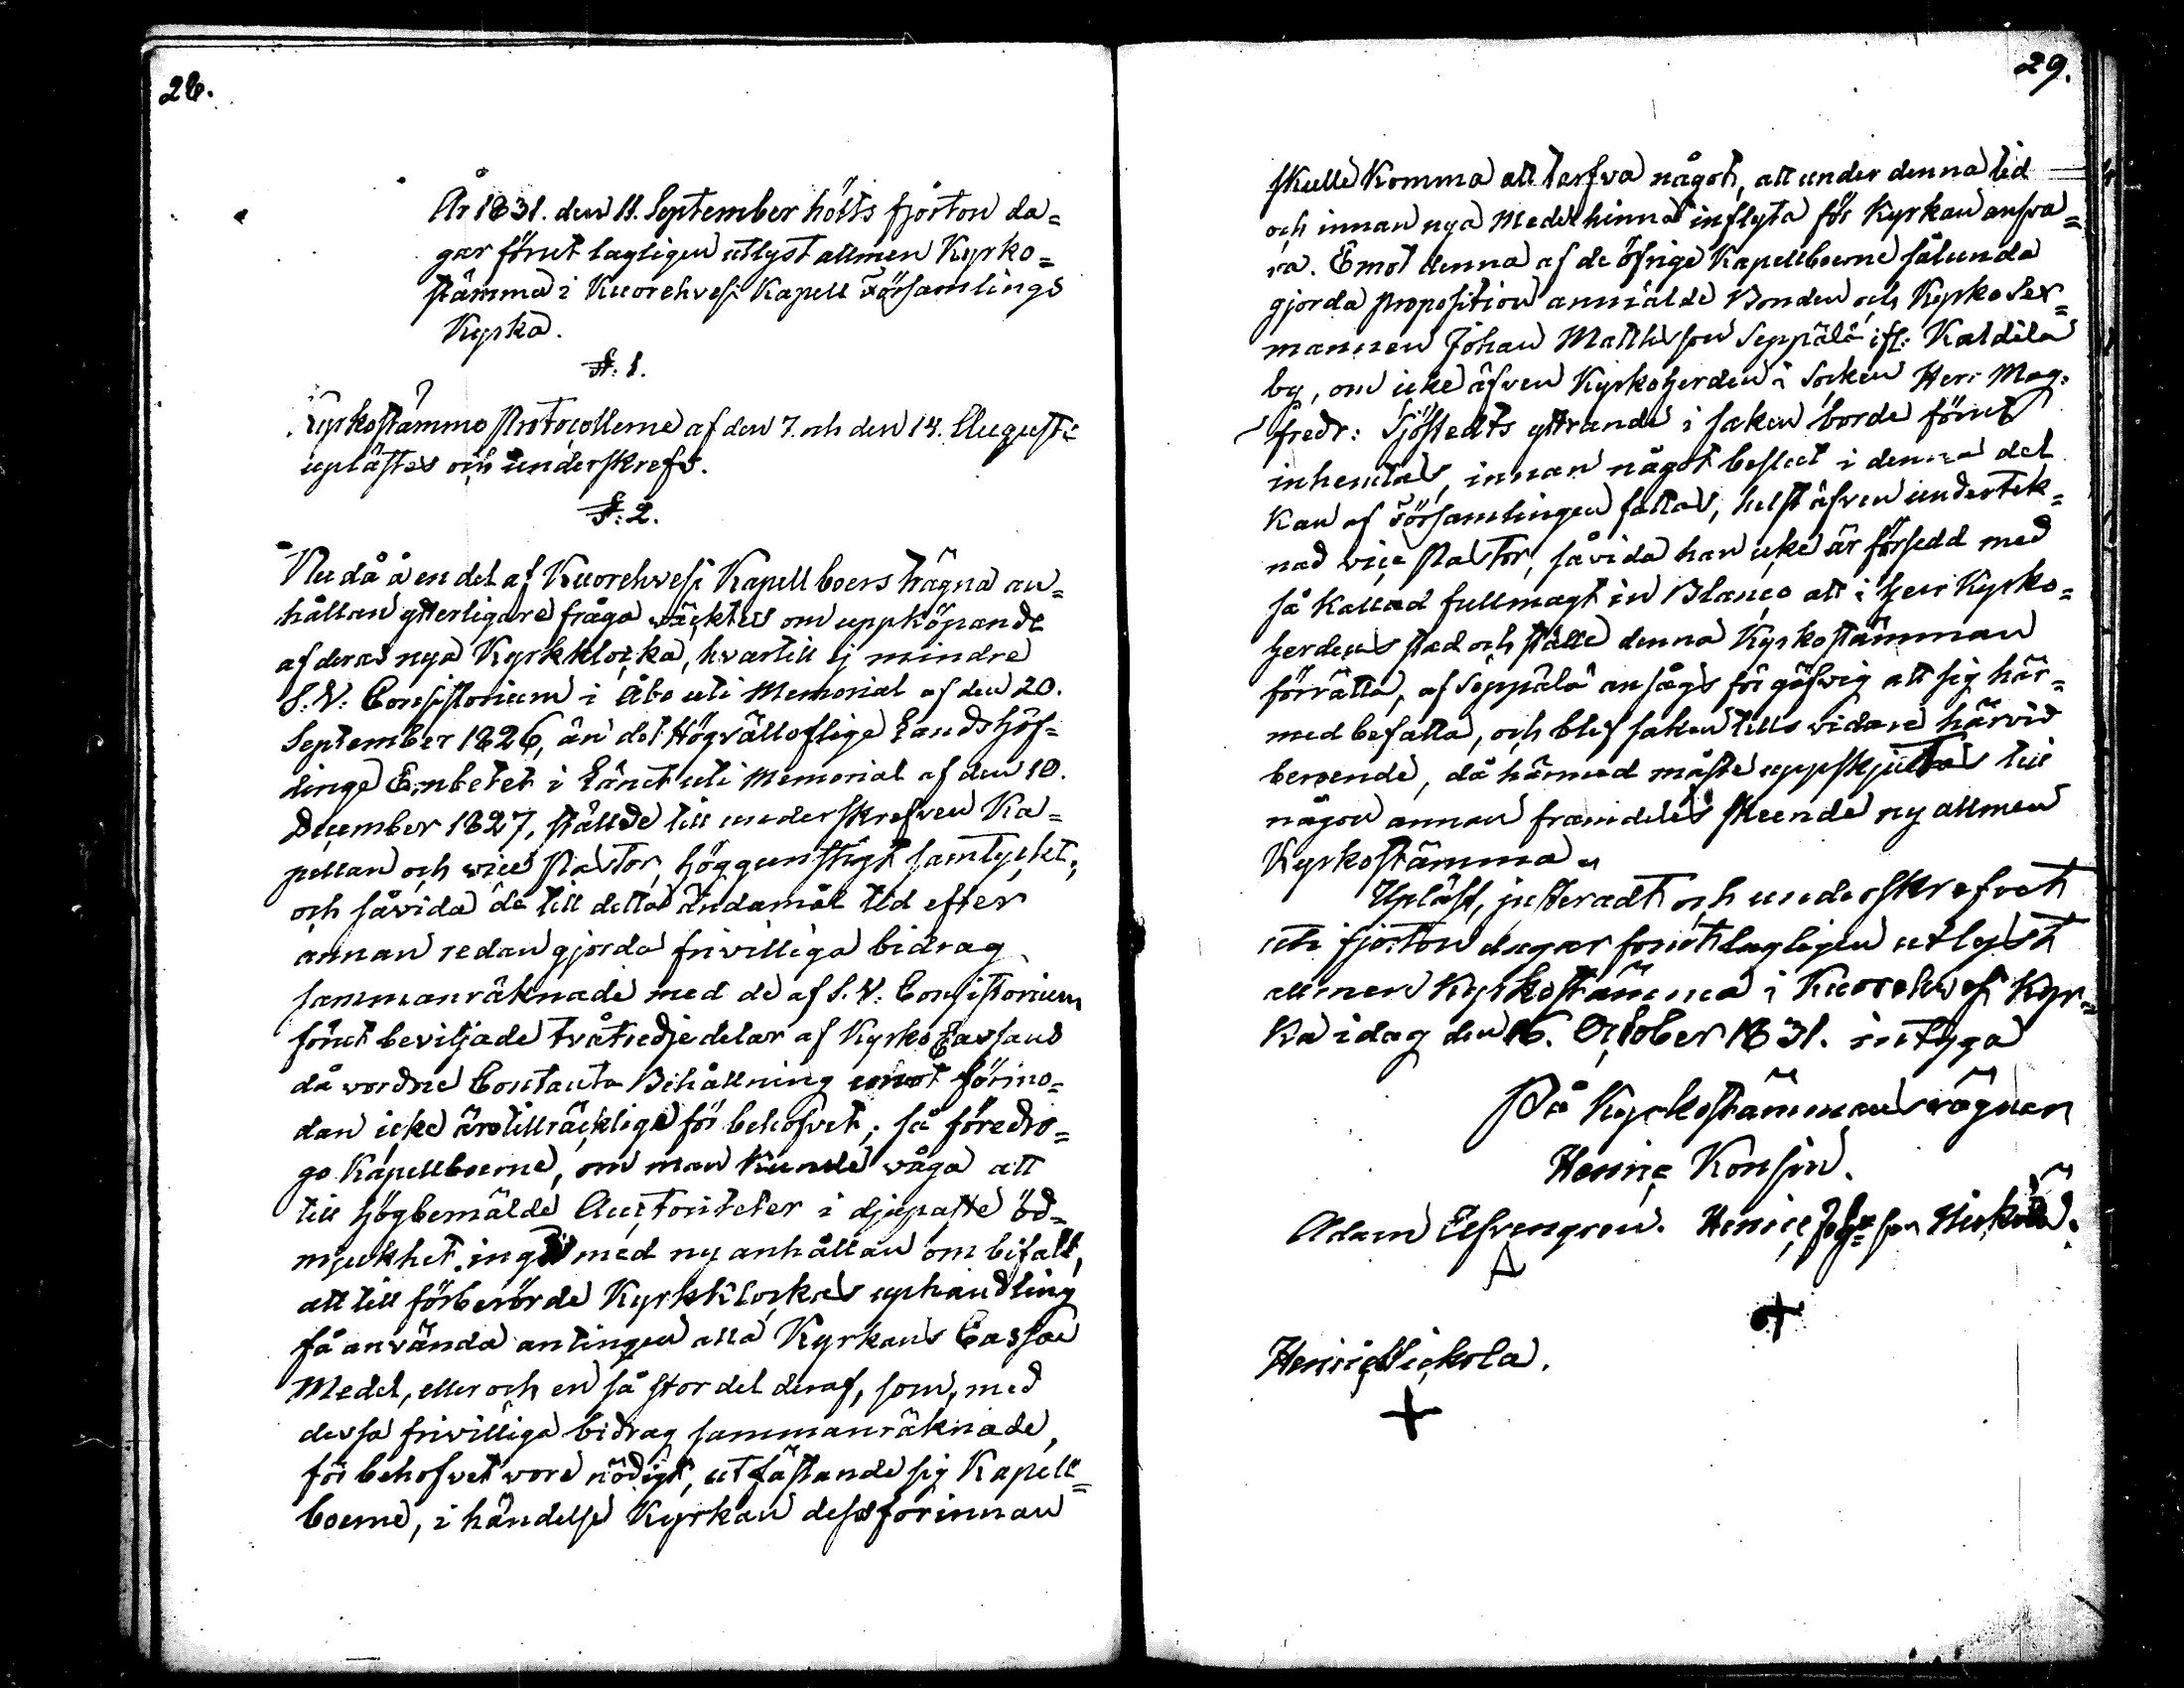 28.
År 1831. den 11. September hölts fjorton da=
gar förut lagligen utlyst allmen Kyrko=
stämma i Kuorehvesi Kapell Församlings
Kyrka.
§. 1.
Kyrkostämmo Protocollerne af den 7. och den 14. Augusti
uplästes och underskrefs.
§. 2.
Nu då å en del af Kuorehvesi Kapellboers trägna an=
hållan ytterligare fråga väcktes om uppköpande
af deras nya Kyrkklocka, hvartill ej mindre
S. V. Consistorium i Åbo uti Memorial af den 20.
September 1826, än det Högvälloflige Landshöf=
dinge Embetet i Länet uti Memorial af den 10.
December 1827, stälde till underskrefven Ka=
pellan och vice Pastor, höggunstigt samtyckt,
och såvida de till detta ändamål tid efter
annan redan gjorda frivilliga bidrag
sammanräknade med de af S. V. Consistorium
förut beviljade tvåtredjedelar af Kyrko Cassans
då vordne Contanta Behållning emot förmo=
dan icke äro tillräcklige för behofvet; så föredro=
go Kapellboerne, om man kunde våga att
till högbemälde Auctoriteter i djupaste öd=
mjukhet ingå med ny anhållan om bifall,
att till förberörde Kyrkklockas uphandling
få använda antingen alla Kyrkans Cassae
Medel, eller och en så stor del deraf, som, med
dessa frivilliga bidrag sammanräknade,
för behofvet vore nödigt, utfästande sig Kapell=
boerne, i händelse Kyrkan dessförinnan
29.
skulle komma att tarfva något, att under denna tid
och innan nya Medel hinna inflyta för Kyrkan ansva=
ra. Emot denna af de öfrige Kapellboerne sålunda
gjorda proposition anmälde Bonden och Kyrko Sex=
mannen Johan Matthsson Seppälä ifr. Kaldila
by, om icke äfven Kyrkoherden i Socken Herr Mag.
Fredr: Sjöstedts yttrande i saken borde förut
inhemtas, innan något beslut i denna del
kan af Församlingen fattas, helst äfven underteck=
nad vice Pastor, såvida han icke är försedd med
så kallad fullmagt in Blanco att i Herr Kyrko=
herdens stad och ställe denna Kyrkostämman
förrätta, af Seppälä ansågs för gäfvig att sig här=
med befatta, och blef saken tills vidare härvid
beroende, då härmed måste uppskjutas till
någon annan framdeles skeende ny allmen
Kyrkostämma.
Upläst, justeradt och underskrefvet
uti fjorton dagar förut lagligen utlyst
allmen Kyrkostämma i Kuorehvesi Kyr=
ka idag den 16. October 1831. intyga
På Kyrkostämmans vägnar
Henric Konsin.
Adam Elfvengren. Henric Johsson Hiskiä.
+
Henric Nickola.
+